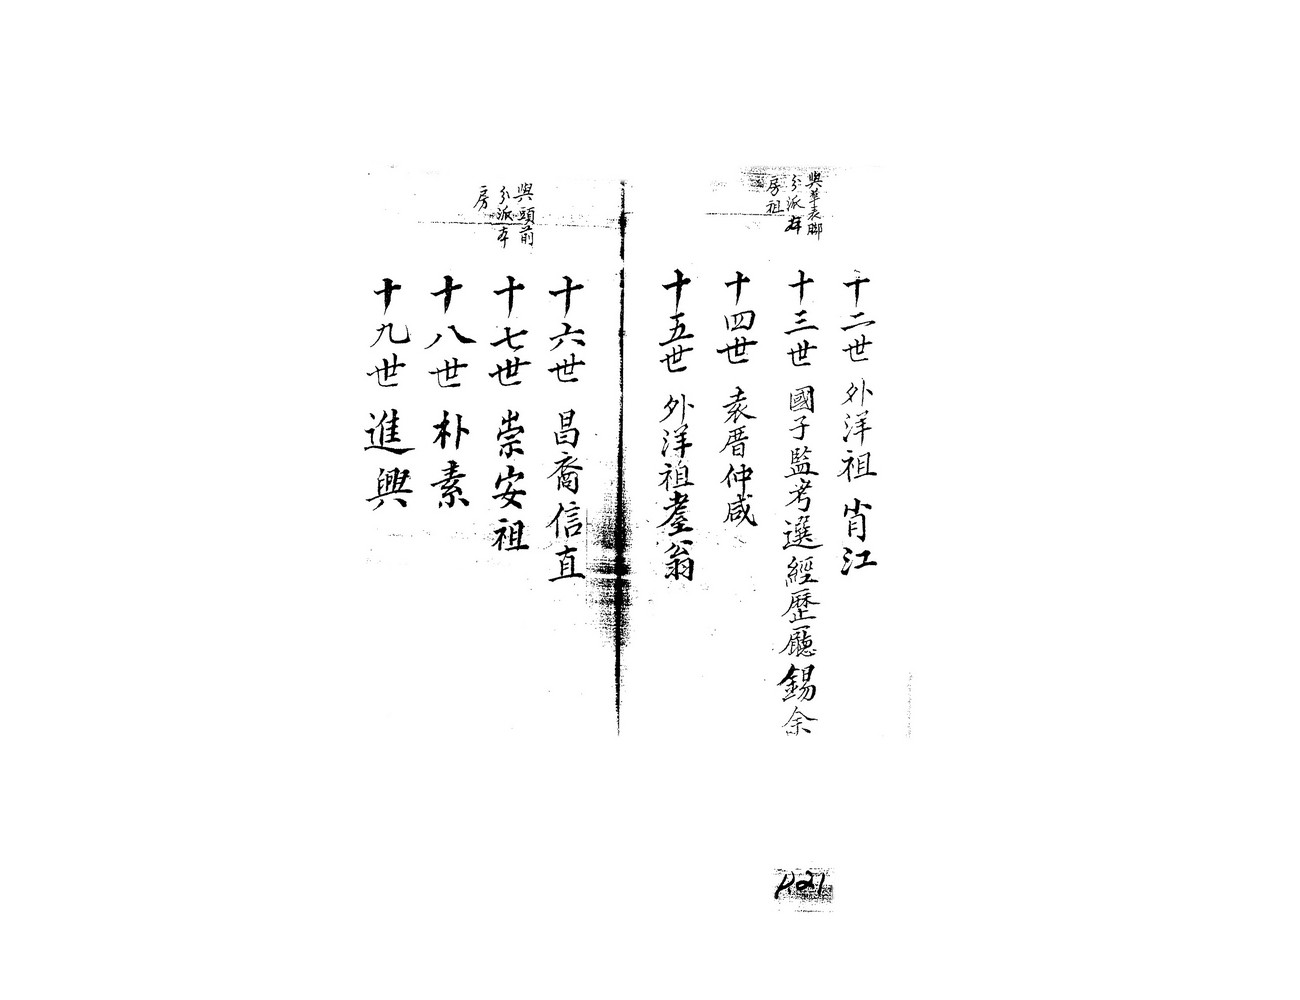 與華表腳
分派存
房祖
十二世 外洋祖 肖江
十三世 國子監考選經歷廳錫余
十四世 袁厝仲咸
十五世 外洋祖耋翁
與頭前
分派本
房
十六世 昌裔信直
十七世 崇安祖
十八世 朴素
十九世 進興
P.21